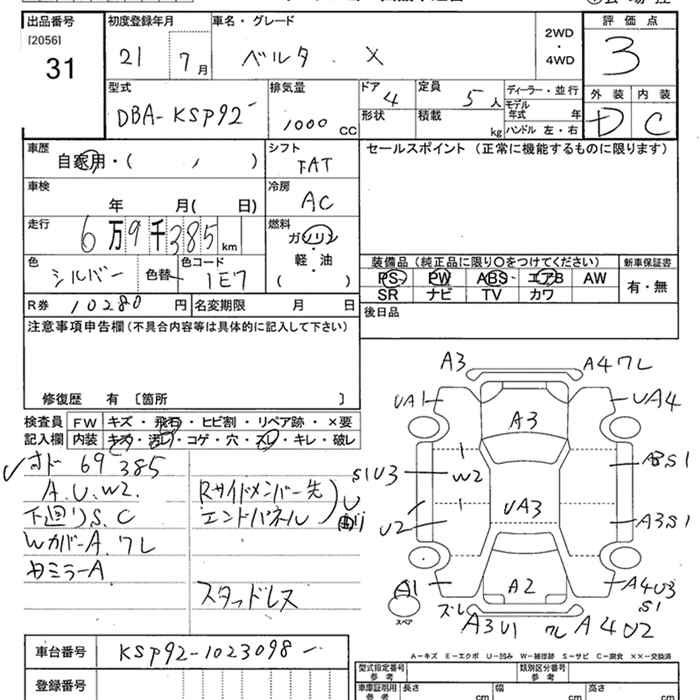 出品番号
[2056]
31
初度登録年月
21 7月
車名・グレード
ベルタ X
2WD
・
4WD
評価点
3
型式
DBA-KSP92
排気量
1000 CC
ドア
4
形状
定員
5人
積載
kg
ディーラー・並行
モデル年式 年
ハンドル 左・右
外装
内装
D
C
車歴
自家用・( , )
シフト
FAT
セールスポイント (正常に機能するものに限ります)
車検
年 月( 日)
冷房
AC
走行
6万9千385km
燃料
ガソリン
・
軽・油
( )
色
シルバー
色替
色コード
1E7
装備品 (純正品に限り〇をつけてください)
新車保証書
PS PW ABS エアB AW
SR ナビ TV カワ
有・無
R券 10280円
名変期限 月 日
後日品
注意事項申告欄 (不具合内容等は具体的に記入して下さい)
修復歴 有 〔箇所 〕
検査員
記入欄
FW キズ・飛石・ヒビ割・リペア跡・×要
内装 キズ・汚レ・コゲ・穴・スレ・キレ・破レ
オド 69385
A.U.W2.
下回りS.C
WカバーA.ワレ
カミラーA
Rサイドメンバー先
エンドパネル
U
曲り
スタッドレス
A3
A4ワレ
UA1
A3
UA4
S1U3
W2
A3S1
U2
UA3
A3S1
A1
A2
A4U3
S1
スペア
ズレ
A3U1
ワレ
A4U2
A-キズ E-エクボ U-凹み W-補修跡 S-サビ C-腐食 XX-交換済
車台番号
KSP92-1023098
登録番号
型式指定番号
参考
類別区分番号
参考
車庫証明用
参考
長さ cm
幅 cm
高さ cm